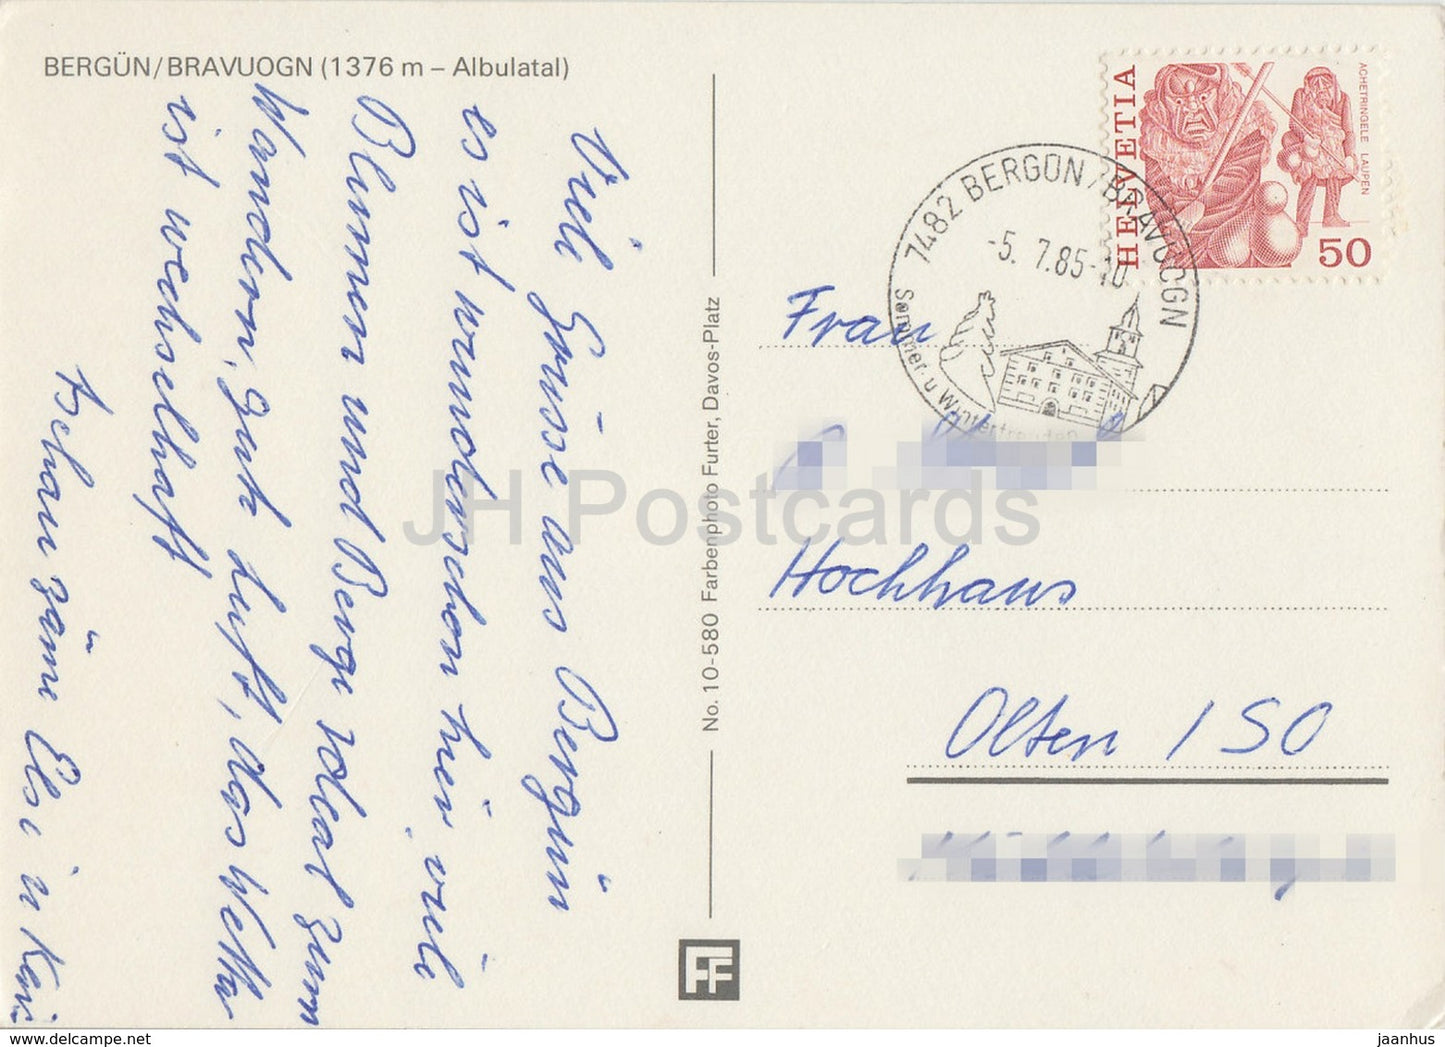 BERGÜN/BRAVUOGN (1376 m – Albulatal)
Viele Grüsse aus Bergün
es ist wunderschön hier, viele
Blumen und Berge ideal zum
Wandern, gute Luft, das Wetter
ist wechselhaft
Tschau zäme Elsi u Kari
No. 10-580 Farbenphoto Furter, Davos-Platz
FF
HELVETIA
ACHETRINGELE LAUPEN
50
7482 BERGÜN/BRAVUOGN
-5. 7.85-10
Sommer- u Winterfreuden
Frau
Hochhaus
Olten / SO
JH Postcards
jaanhus